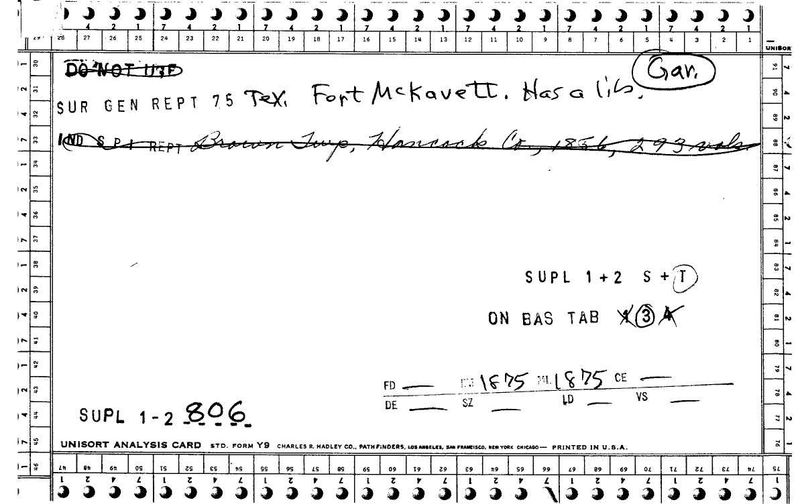 28 27 26 25 24 23 22 21 20 19 18 17 16 15 14 13 12 11 10 9 8 7 6 5 4 3 2 1
UNISOR
DO NOT USE
Gar.
SUR GEN REPT 75 Tex. Fort McKavett. Has a lib.
IND SPI REPT Brown Twp, Hancock Co, 1856, 293 vols.
SUPL 1+2 S+T
ON BAS TAB 1 3 4
FD — 1875 ML 1875 CE —
DE — SZ — LD — VS —
SUPL 1-2 806
UNISORT ANALYSIS CARD STD. FORM Y9 CHARLES R. HADLEY CO., PATHFINDERS, LOS ANGELES, SAN FRANCISCO, NEW YORK CHICAGO — PRINTED IN U.S.A.
47 48 49 50 51 52 53 54 55 56 57 58 59 60 61 62 63 64 65 66 67 68 69 70 71 72 73 74 75